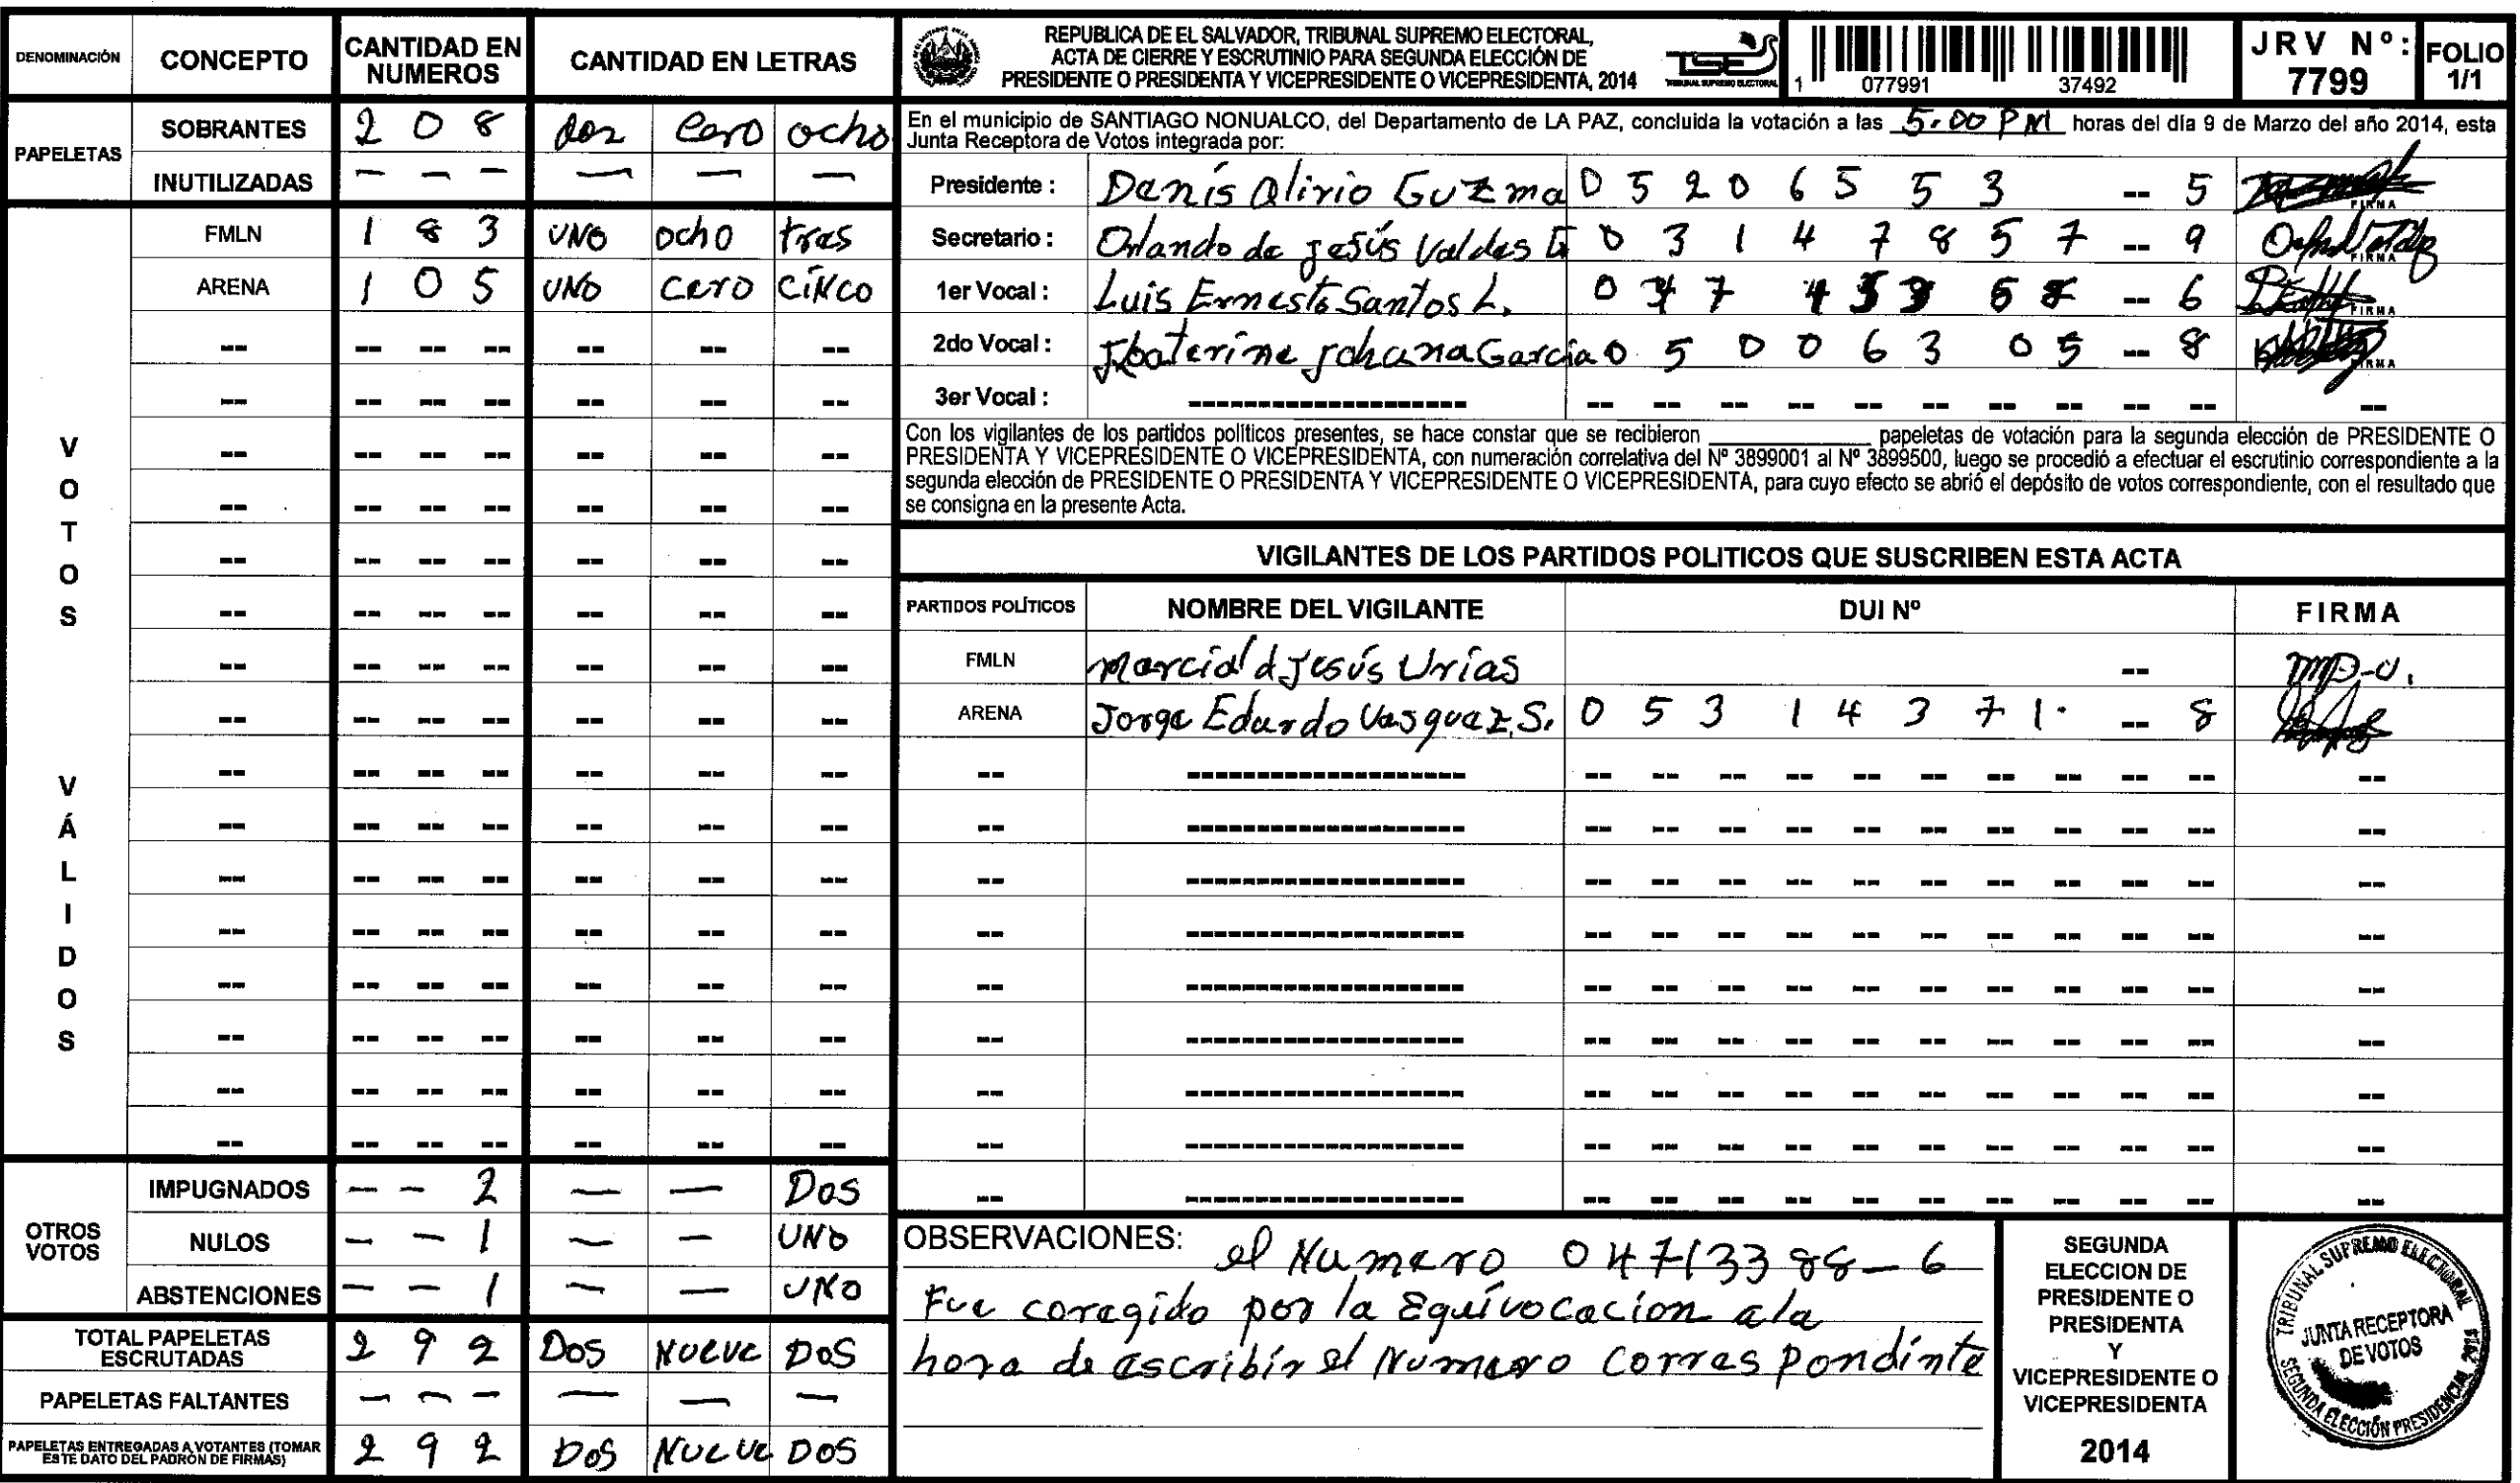 DENOMINACIÓN CONCEPTO CANTIDAD EN NUMEROS CANTIDAD EN LETRAS
PAPELETAS
SOBRANTES 2 0 8 dos cero ocho
INUTILIZADAS — — — — — —
VOTOS VÁLIDOS
FMLN 1 8 3 UNO ocho tres
ARENA 1 0 5 UNO cero CINCO
OTROS VOTOS
IMPUGNADOS — — 2 — — DOS
NULOS — — 1 — — UNO
ABSTENCIONES — — 1 — — UNO
TOTAL PAPELETAS ESCRUTADAS 2 9 2 DOS NUEVE DOS
PAPELETAS FALTANTES — — — — — —
PAPELETAS ENTREGADAS A VOTANTES (TOMAR ESTE DATO DEL PADRÓN DE FIRMAS) 2 9 2 DOS NUEVE DOS
REPUBLICA DE EL SALVADOR, TRIBUNAL SUPREMO ELECTORAL,
ACTA DE CIERRE Y ESCRUTINIO PARA SEGUNDA ELECCIÓN DE
PRESIDENTE O PRESIDENTA Y VICEPRESIDENTE O VICEPRESIDENTA, 2014
TSE
TRIBUNAL SUPREMO ELECTORAL
1 077991 37492
JRV Nº: 7799
FOLIO 1/1
En el municipio de SANTIAGO NONUALCO, del Departamento de LA PAZ, concluida la votación a las 5:00 PM horas del día 9 de Marzo del año 2014, esta
Junta Receptora de Votos integrada por:
Presidente : Denis Alirio Guzma 0 5 2 0 6 5 5 3 -- 5 FIRMA
Secretario : Orlando de Jesús Valdes 0 3 1 4 7 8 5 7 -- 9 FIRMA
1er Vocal : Luis Ernesto Santos L. -- 6 FIRMA
2do Vocal : Johana Garcia 0 5 0 0 6 3 0 5 -- 8 FIRMA
3er Vocal :
Con los vigilantes de los partidos políticos presentes, se hace constar que se recibieron ____________ papeletas de votación para la segunda elección de PRESIDENTE O
PRESIDENTA Y VICEPRESIDENTE O VICEPRESIDENTA, con numeración correlativa del Nº 3899001 al Nº 3899500, luego se procedió a efectuar el escrutinio correspondiente a la
segunda elección de PRESIDENTE O PRESIDENTA Y VICEPRESIDENTE O VICEPRESIDENTA, para cuyo efecto se abrió el depósito de votos correspondiente, con el resultado que
se consigna en la presente Acta.
VIGILANTES DE LOS PARTIDOS POLITICOS QUE SUSCRIBEN ESTA ACTA
PARTIDOS POLÍTICOS NOMBRE DEL VIGILANTE DUI Nº FIRMA
FMLN Marcial d Jesús Urías --
ARENA Jorge Eduardo Vasquez, S. 0 5 3 1 4 3 7 1 -- 8
OBSERVACIONES: el Numero 04713388-6
Fue coregido por la Equivocacion a la
hora de escribir el Numero Correspondinte
SEGUNDA
ELECCION DE
PRESIDENTE O
PRESIDENTA
Y
VICEPRESIDENTE O
VICEPRESIDENTA
2014
TRIBUNAL SUPREMO ELECTORAL
JUNTA RECEPTORA
DE VOTOS
SEGUNDA ELECCIÓN PRESIDENCIAL 2014